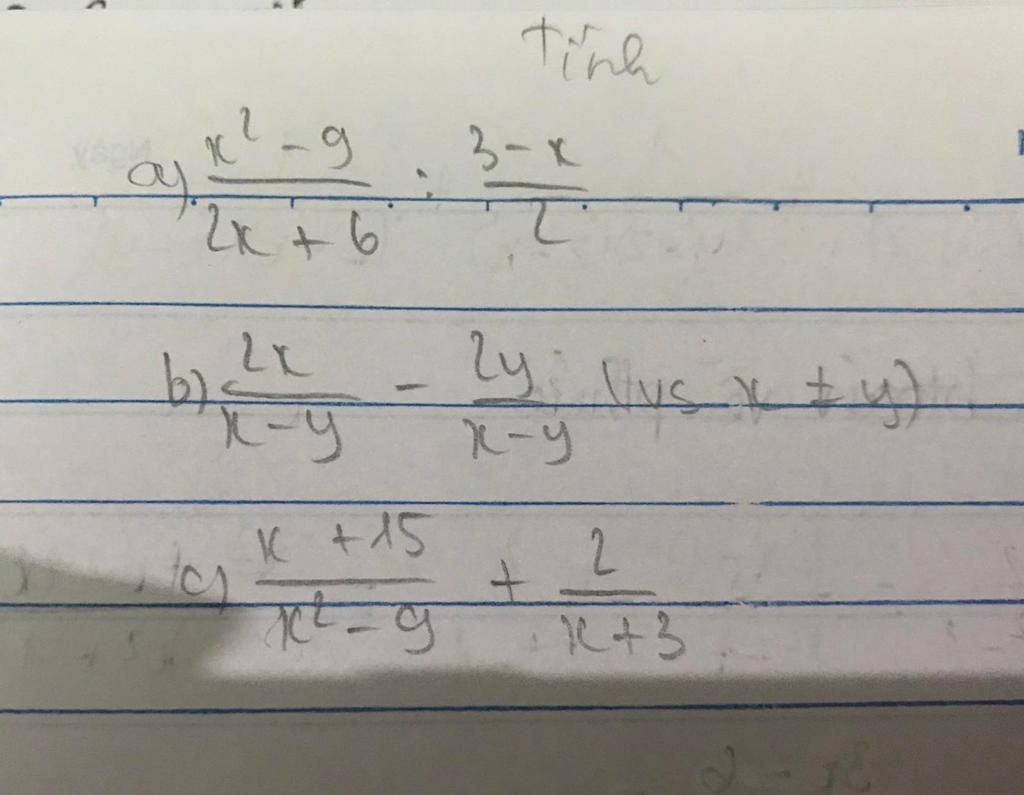 Tính
a) \frac{x^2 - 9}{2x + 6} : \frac{3 - x}{2}
b) \frac{2x}{x - y} - \frac{2y}{x - y} (vs x ≠ y)
c) \frac{x + 15}{x^2 - 9} + \frac{2}{x + 3}